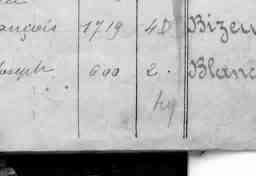 ançois 1719 40 Bizeu
Joseph 600 2. Blanc
49